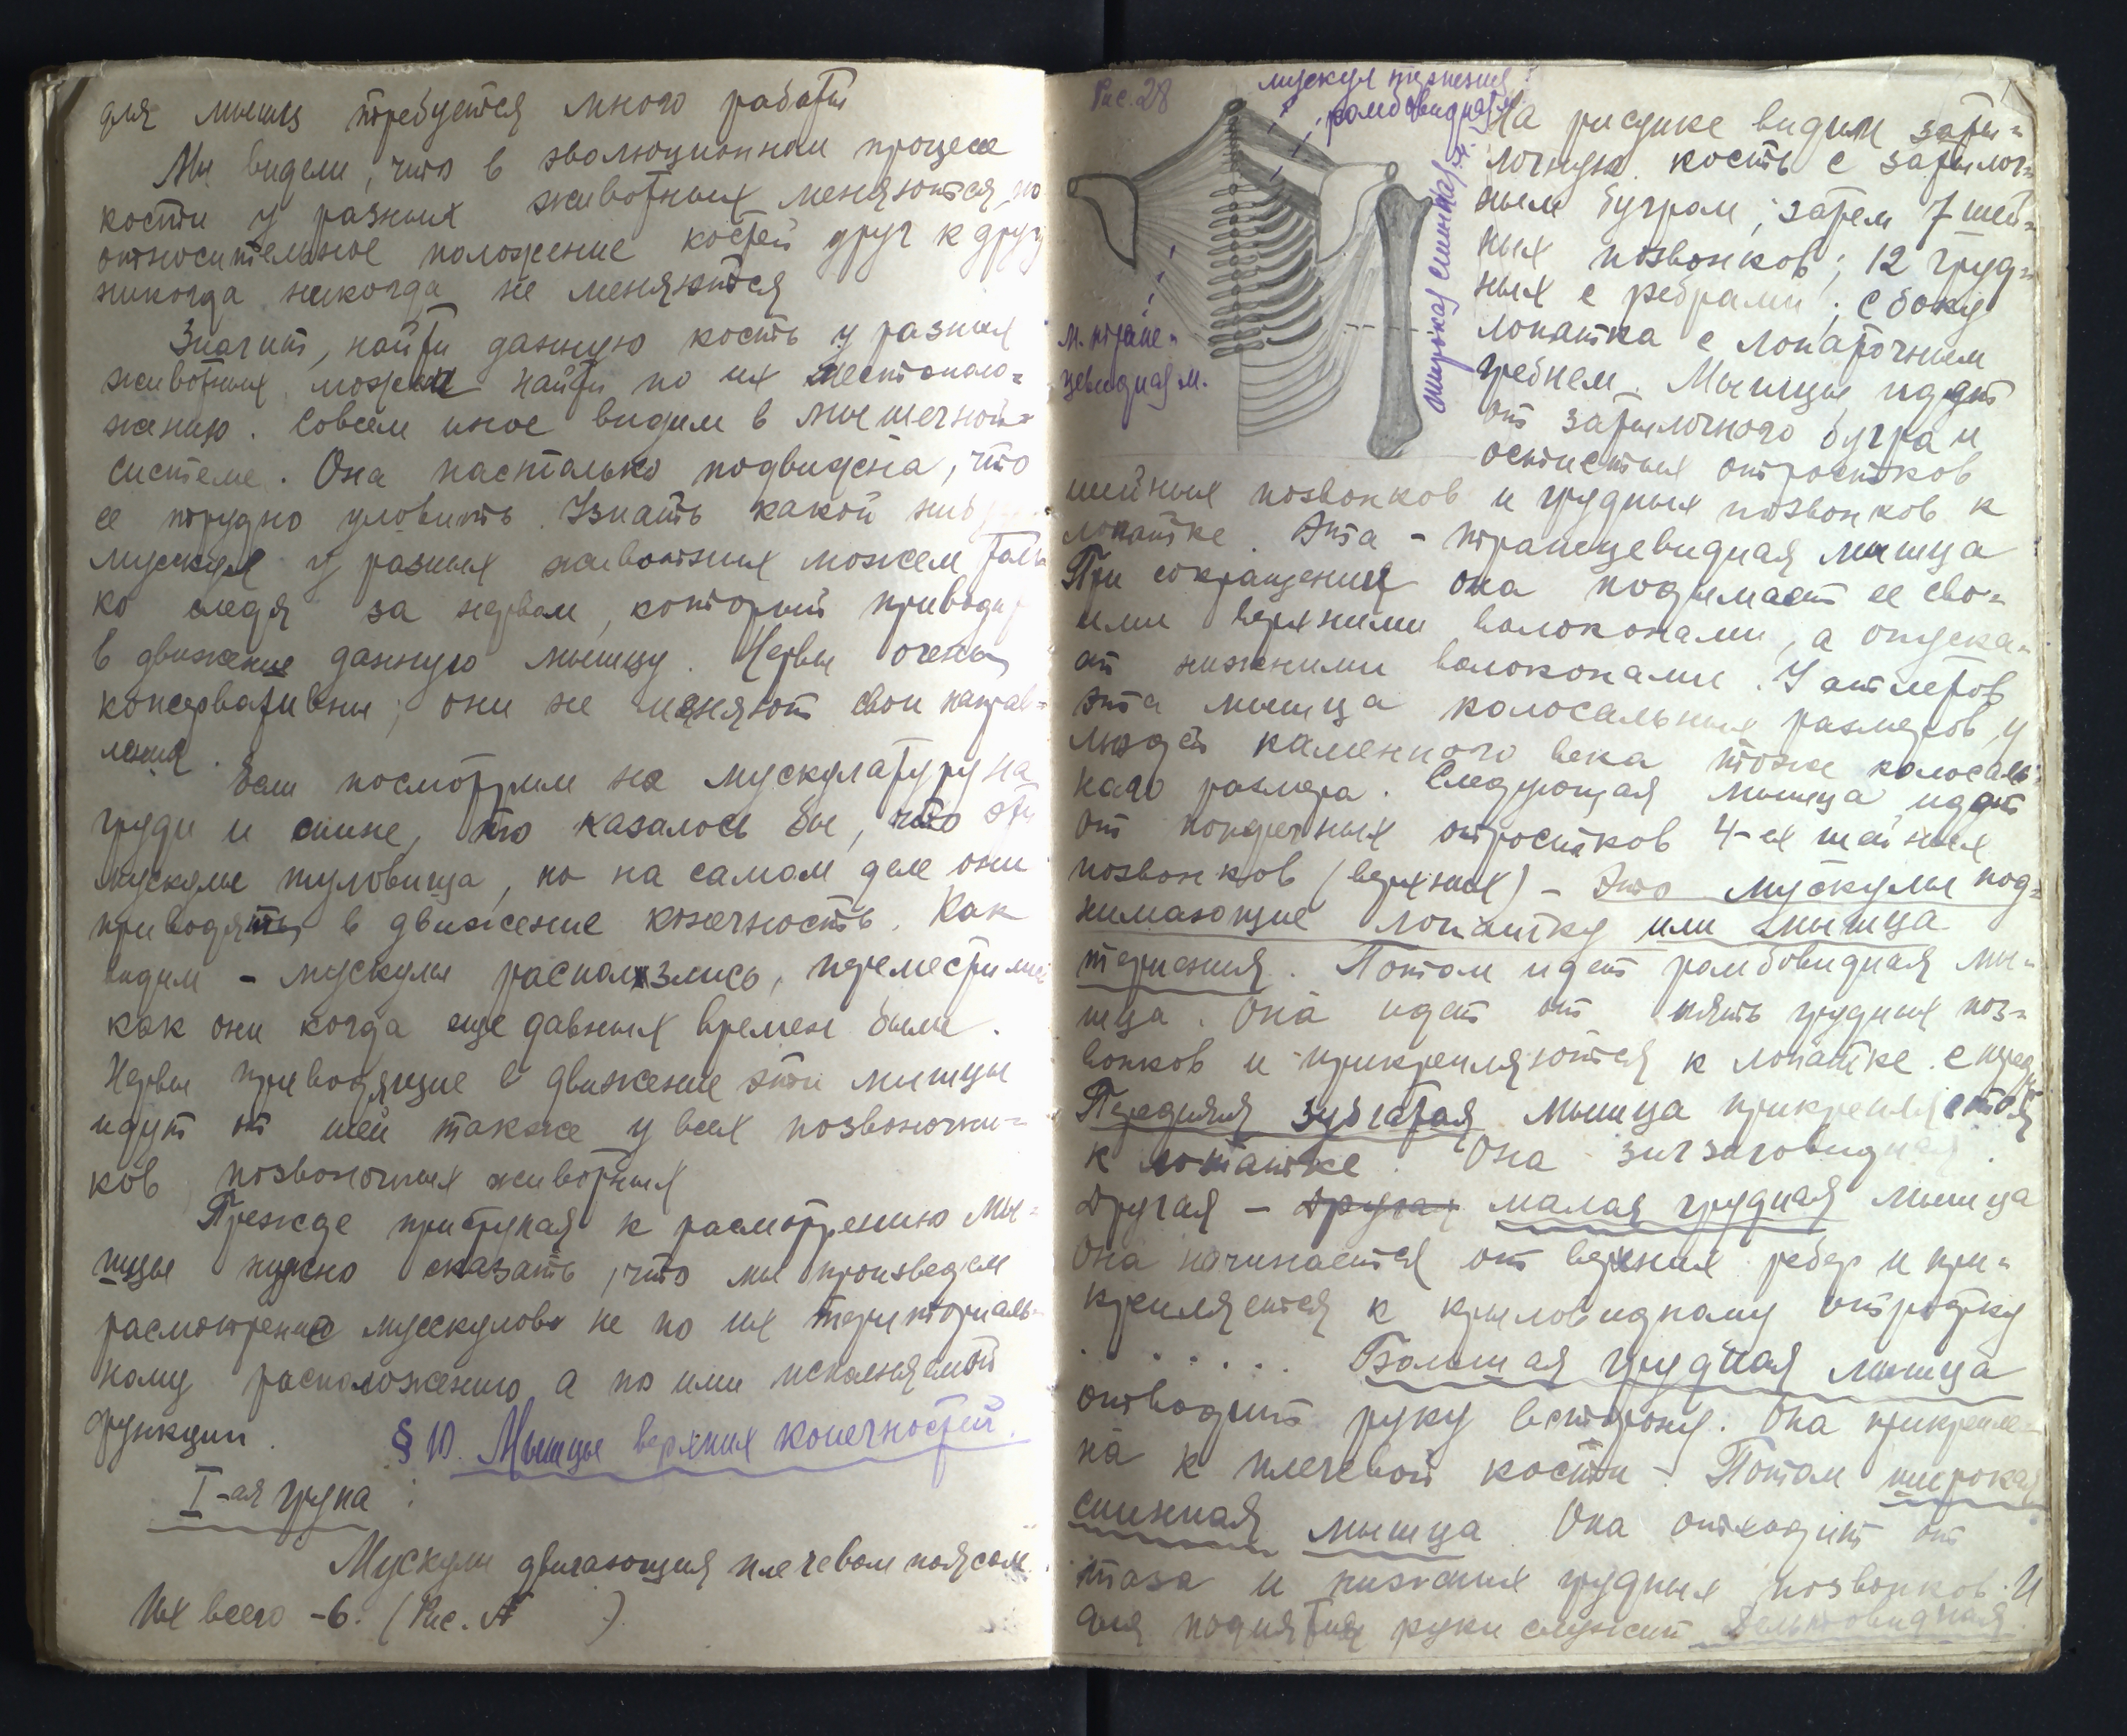 для мышц требуется много работы
Мы видели, что в эволюционном процессе
кости у разных животных меняются, но
относительное положение костей друг к другу
никогда никогда не меняются
Значит, найти данную кость у разных
животных можем найти по их местополо=
жению. Совсем иное видим в мышечной
системе. Она настолько подвижна, что
ее трудно уловить. Узнать какой
мускул у разных животных можем толь
ко следя за нервом, который приводит
в движение данную мышцу. Нервы очень
консервативны; они не меняют свои направ=
ления.
Если посмотрим на мускулатуру на
груди и спине, то казалось бы, что эти
мускулы туловища, но на самом деле они
приводять в движение конечность. Как
видим - мускулы расползлись, переместились
как они когда еще давных времен были.
Нервы приводящие в движение эти мышцы
идут от шеи также у всех позвоночни=
ков позвоночных животных
Прежде приступая к расмотрению мы=
шцы нужно сказать, что мы произведем
расмотрение мускулов не по их териториаль=
ному расположению а по ими исполняемой
функции.
§ 10. Мышцы верхних конечностей.
I-ая група :
Мускулы двигающия плечевом поясом.
Их всего -6. (Рис. №      )
Рис. 28
мускул терпения
ромбовидная м.
широкая спинная м.
м. трапе=
цевидная м.
На рисунке видим заты=
лочную кость с затылоч=
ным бугром; затем 7 шей=
ных позвонков; 12 груд=
ных с ребрами; с боку
лопатка с лопаточным
гребнем. Мышцы идут
от затылочного бугра и
остистых отростков
шейных позвонков и грудных позвонков к
лопатке. Эта - трапецевидная мышца
При сокращении она подымает ее сво=
ими верхними волокнами, а опуска=
ет нижними волокнами. У атлетов
эта мышца колосальных размеров, у
людей каменного века тоже колосаль=
ного размера. Следующая мышца идет
от поперечных отростков 4-ех шейных
позвонков (верхних) - Это мускулы под=
нимающие лопатку или мышца
терпения. Потом идет ромбовидная мы=
шца. Она идет от пять грудных поз=
вонков и прикрепляются к лопатке. с перед
Передняя зубчатая мышца прикрепляется
к лопатке. Она зигзаговидная.
Другая - Другая малая грудная мышца
Она начинается от верхних ребер и при=
крепляется к крыловидному отростку
. . . . . . Большая грудная мышца
отводит руку в сторону. Она прикрепле=
на к плечевой кости - Потом широкая
спинная мышца. Она отходит от
таза и нижних грудных позвонков. И
для поднятия руки служит дельтовидная